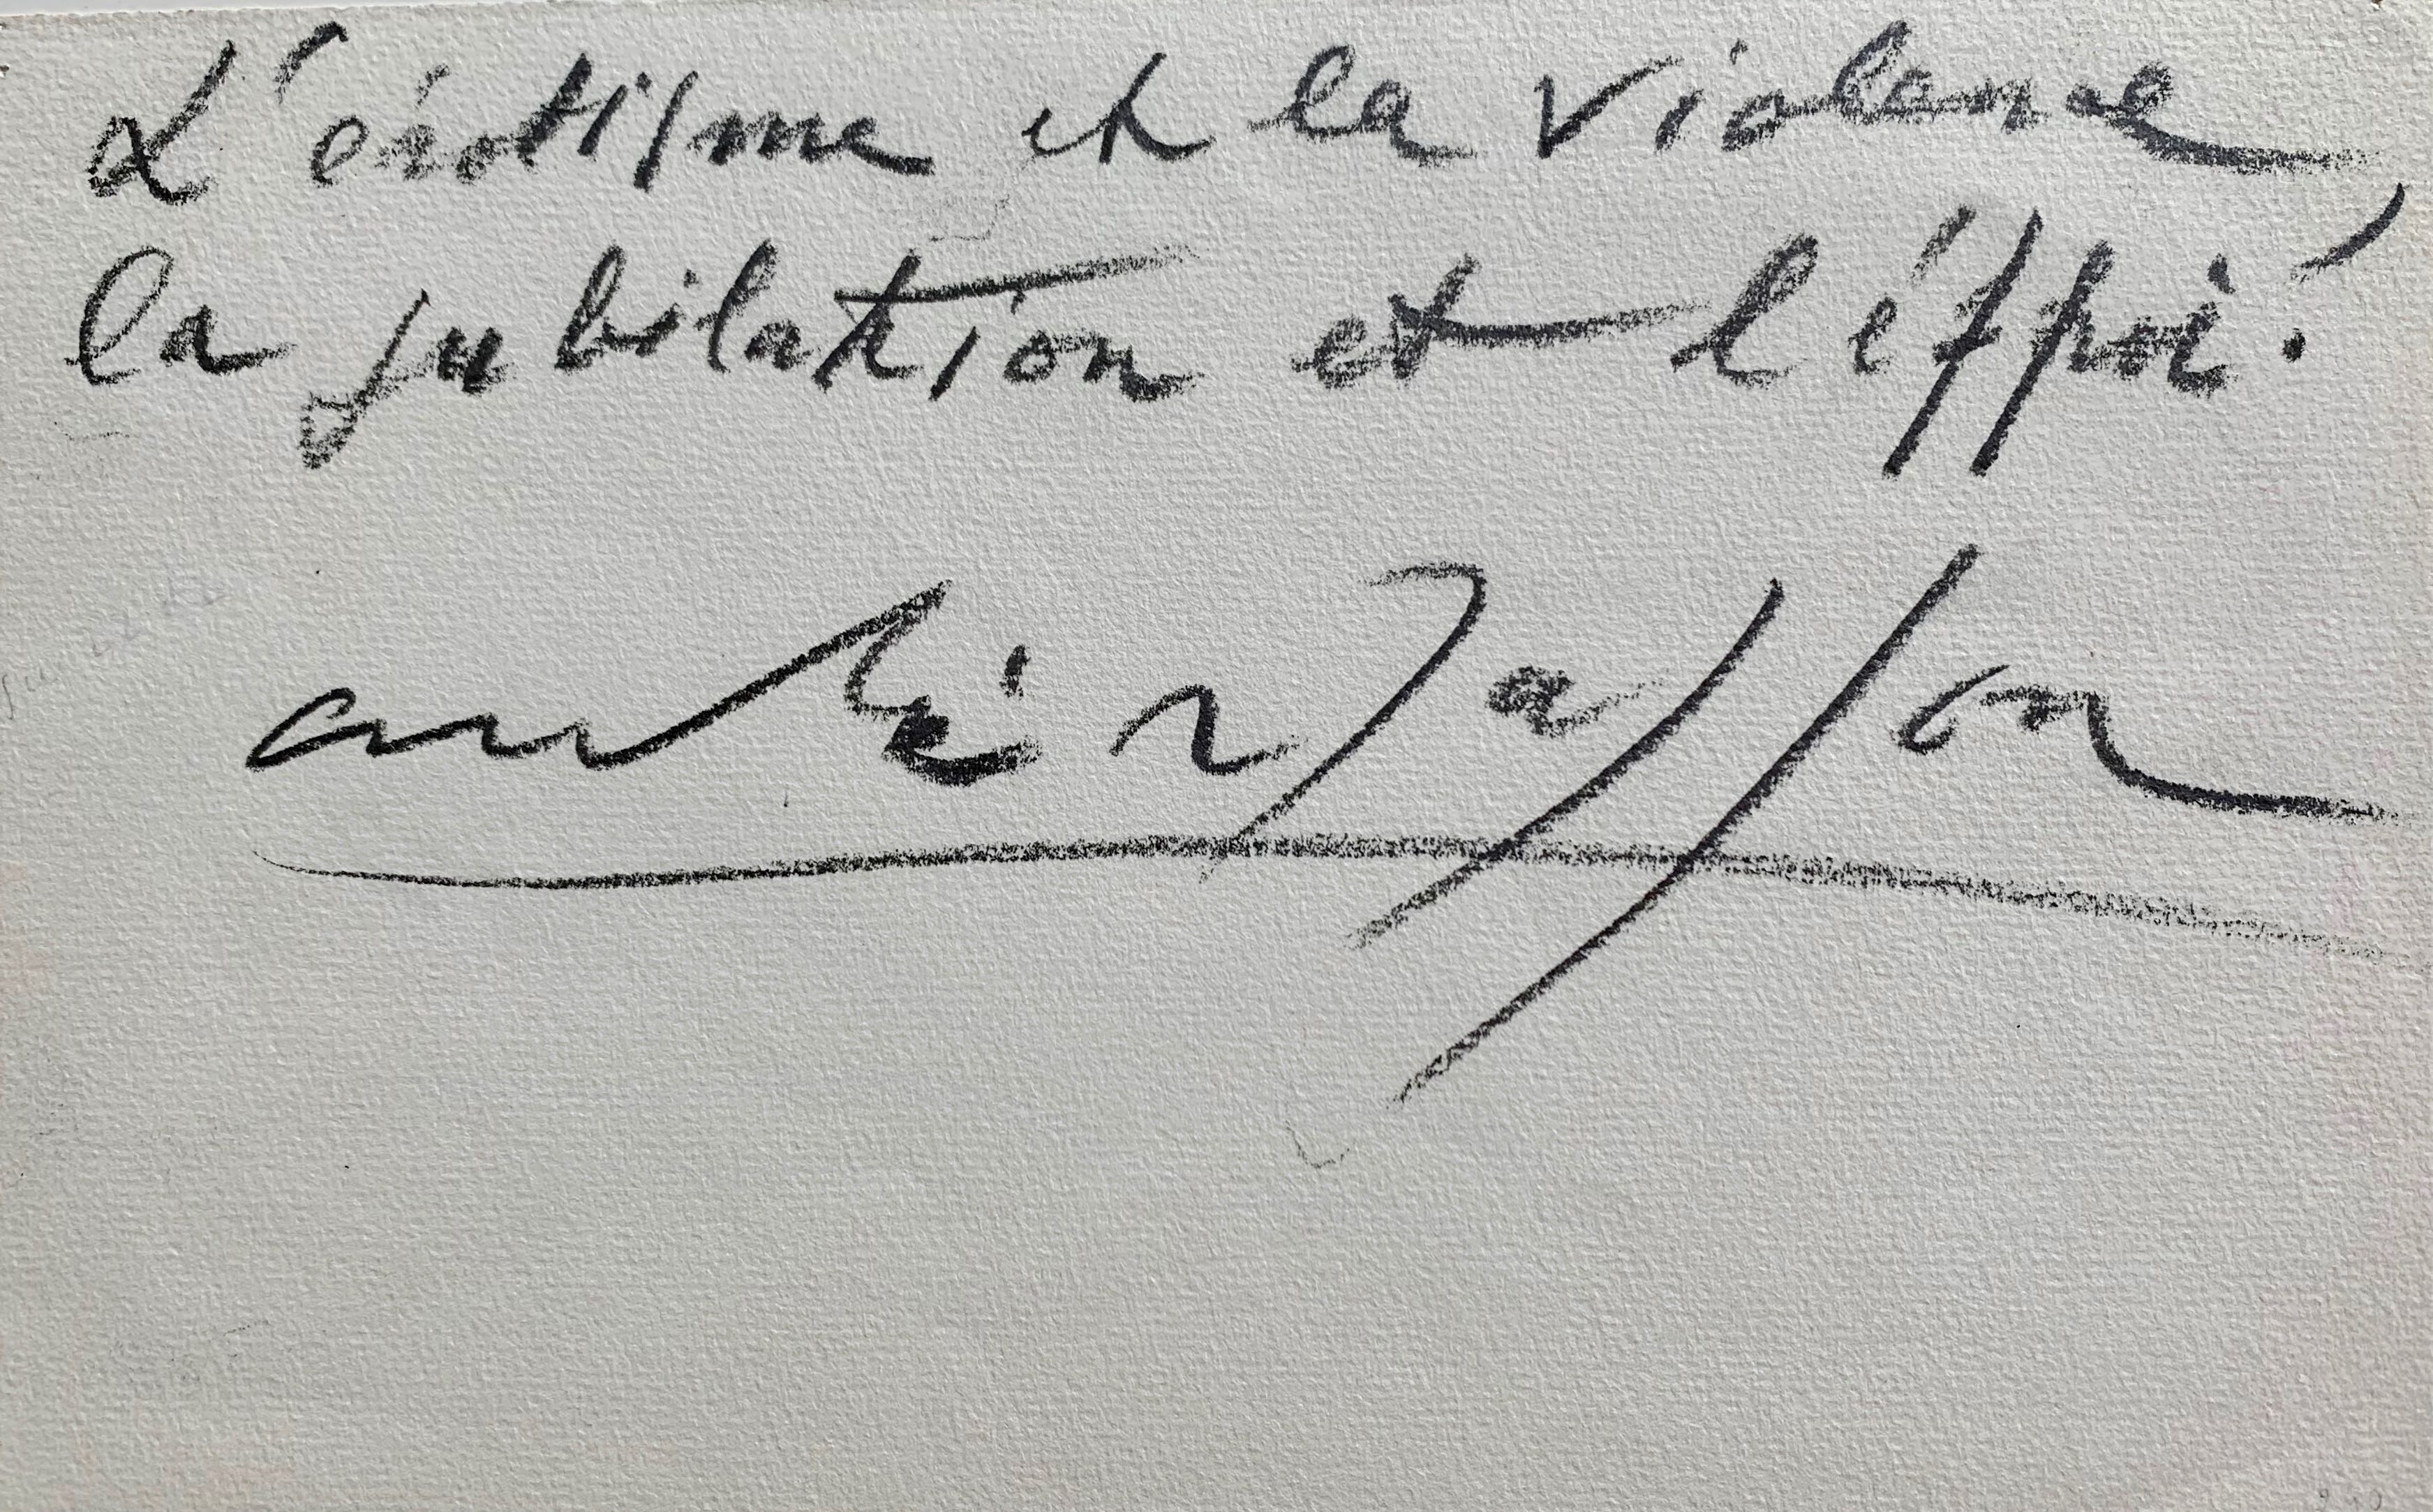 L'érotisme et la violence,
la jubilation et l'éffroi!
andré Masson